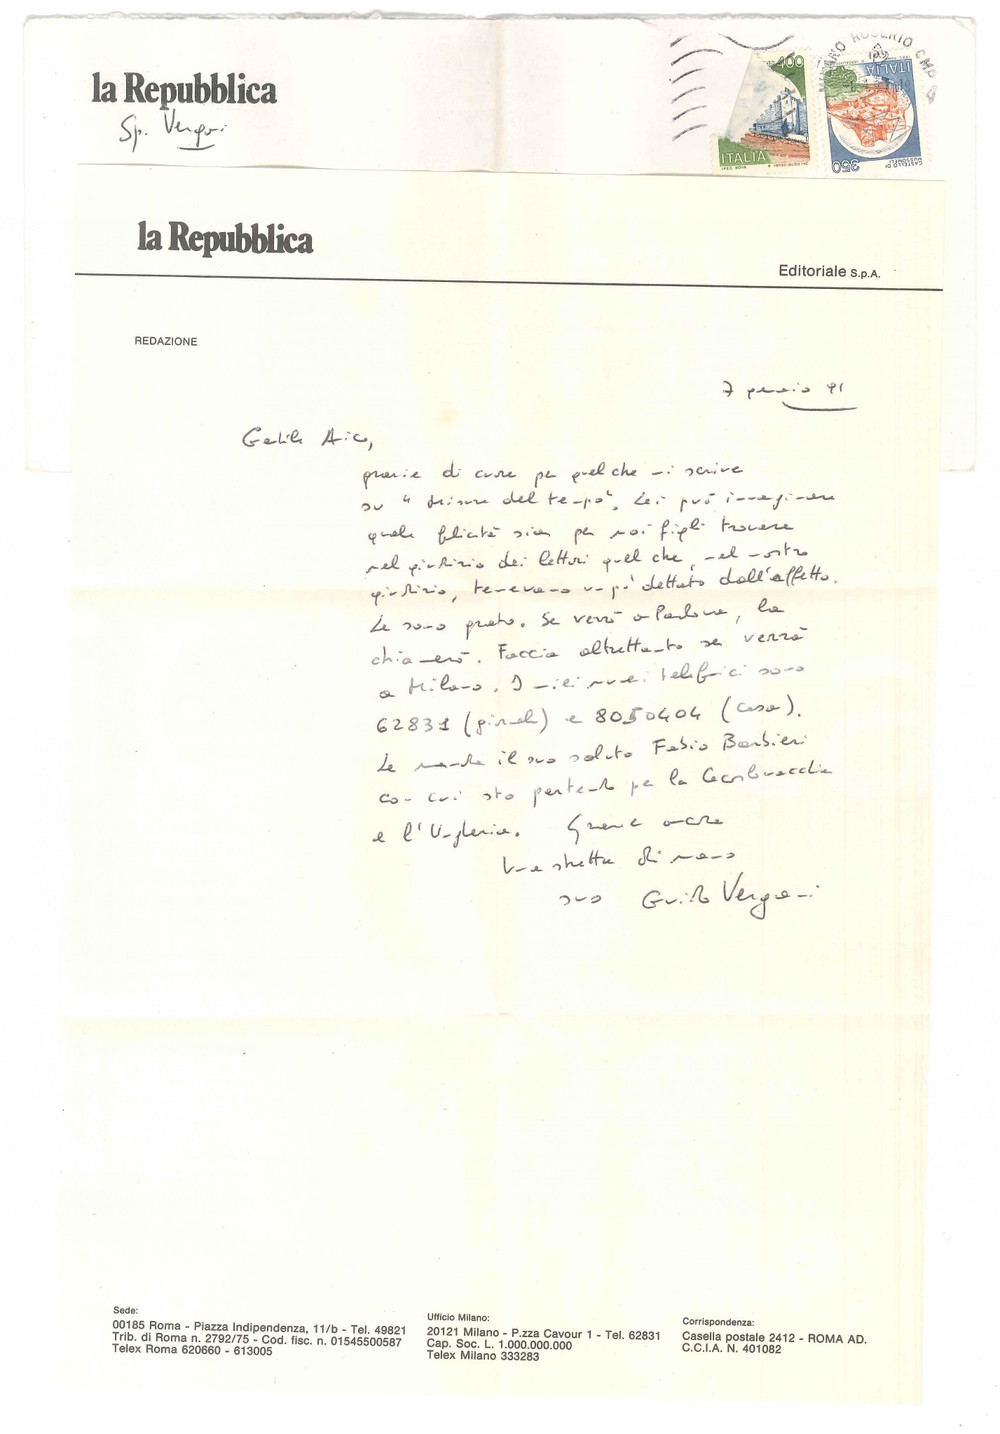 la Repubblica
Sp. Vergani
400
ITALIA
MILANO ROSERIO CMP
ITALIA
350
CASTELLO DI MUSSOMELI
la Repubblica
Editoriale S.p.A.
REDAZIONE
7 gennaio 91
Gentile Aico,
grazie di cuore per quel che mi scrive
su "Misure del tempo". Lei può immaginare
quale felicità sia per noi figli trovare
nel giudizio dei lettori quel che, nel nostro
giudizio, temevamo un po' dettato dall'affetto.
Le sono grato. Se verrò a Padova, la
chiamerò. Faccia altrettanto se verrà
a Milano. I miei numeri telefonici sono
62831 (giornale) e 8050404 (casa).
Le manda il suo saluto Fabio Barbieri
con cui sto partendo per la Cecoslovacchia
e l'Ungheria. Grazie ancora
Una stretta di mano
suo Guido Vergani
Sede:
00185 Roma - Piazza Indipendenza, 11/b - Tel. 49821
Trib. di Roma n. 2792/75 - Cod. fisc. n. 01545500587
Telex Roma 620660 - 613005
Ufficio Milano:
20121 Milano - P.zza Cavour 1 - Tel. 62831
Cap. Soc. L. 1.000.000.000
Telex Milano 333283
Corrispondenza:
Casella postale 2412 - ROMA AD.
C.C.I.A. N. 401082